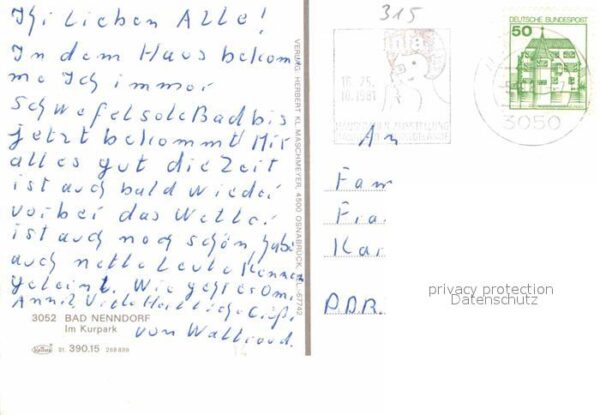 Ihr lieben Alle!
In dem Haus bekom
me Ich immer
Schwefelsole Bad bis
jetzt bekommt Mir
alles gut die Zeit
ist auch bald wieder
vorbei das Wetter
ist auch noch schön, habe
auch nette Leute kennen
gelernt. Wie geht es Omi
Anni? Viele Herzliche Grüße
von Waltraud.
3052 BAD NENNDORF
Im Kurpark
51 390.15
VERLAG: HERBERT KL. MASCHMEYER, 4500 OSNABRÜCK, TEL. 67742
315
16.-25.
10.1981
DEUTSCHE BUNDESPOST
50
3050
An
Fam
Fra
Kar
DDR.
privacy protection
Datenschutz